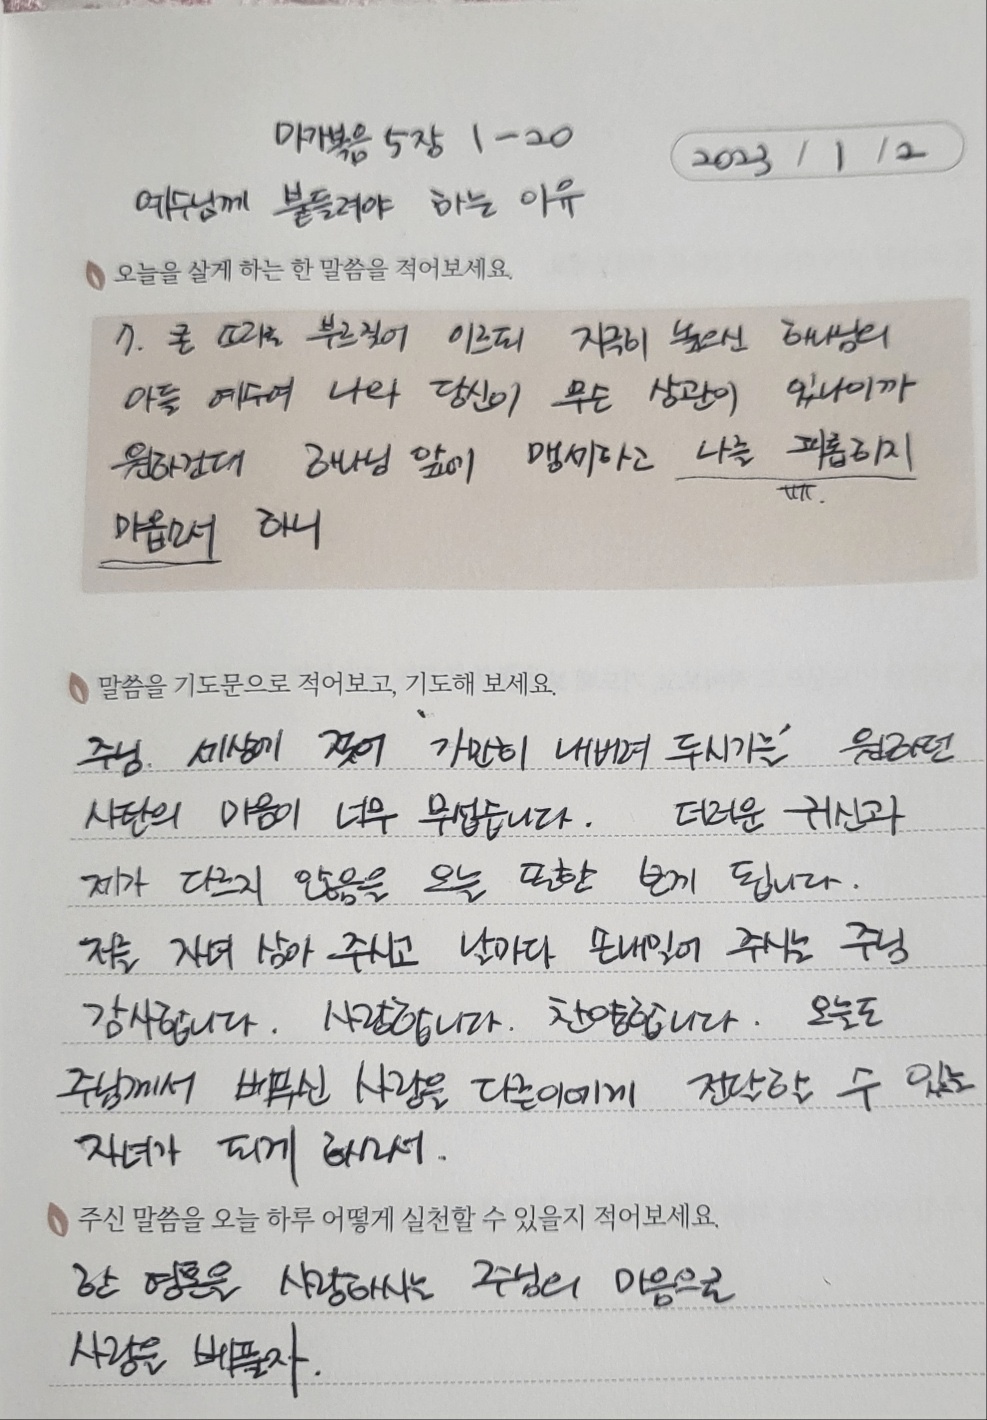 마가복음 5장 1-20
2023 / 1 / 2
예수님께 붙들려야 하는 이유
오늘을 살게 하는 한 말씀을 적어보세요.
7. 큰 소리로 부르짖어 이르되 지극히 높으신 하나님의
아들 예수여 나와 당신이 무슨 상관이 있나이까
원하건대 하나님 앞에 맹세하고 나를 괴롭히지
마옵소서 하니
말씀을 기도문으로 적어보고, 기도해 보세요.
주님. 세상에 젖어 '가만히 내버려 두시기를' 원하던
사탄의 마음이 너무 무섭습니다. 더러운 귀신과
제가 다르지 않음을 오늘 또한 보게 됩니다.
저를 자녀 삼아 주시고 날마다 손내밀어 주시는 주님
감사합니다. 사랑합니다. 찬양합니다. 오늘도
주님께서 베푸신 사랑을 다른이에게 전달할 수 있는
자녀가 되게 하소서.
주신 말씀을 오늘 하루 어떻게 실천할 수 있을지 적어보세요.
한 영혼을 사랑하시는 주님의 마음으로
사랑을 베풀자.